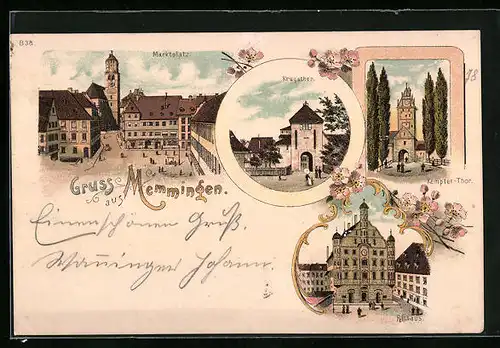 B 38.
Marktplatz.
Krugsthor.
98
Kempter-Thor.
Gruss aus Memmingen.
Einen schönen Gruß.
Johann.
Rathaus.